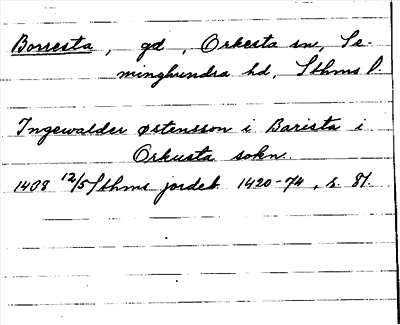 Borresta, gd, Orkesta sn, Se-
minghundra hd, Sthms l.
Ingewalder østensson i Barista i
Orkusta sokn.
1408 12/5 Sthms jordeb 1420-74, s. 81.